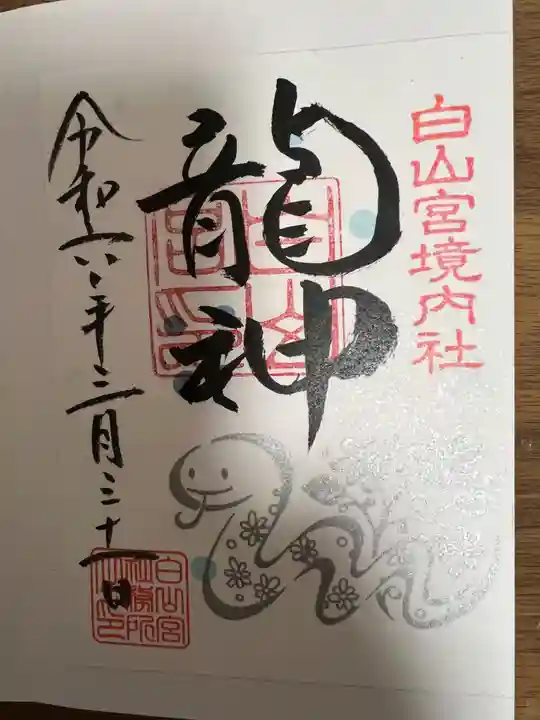 白山宮境内社
龍神
令和六年三月三十一日
白山宮
社務所